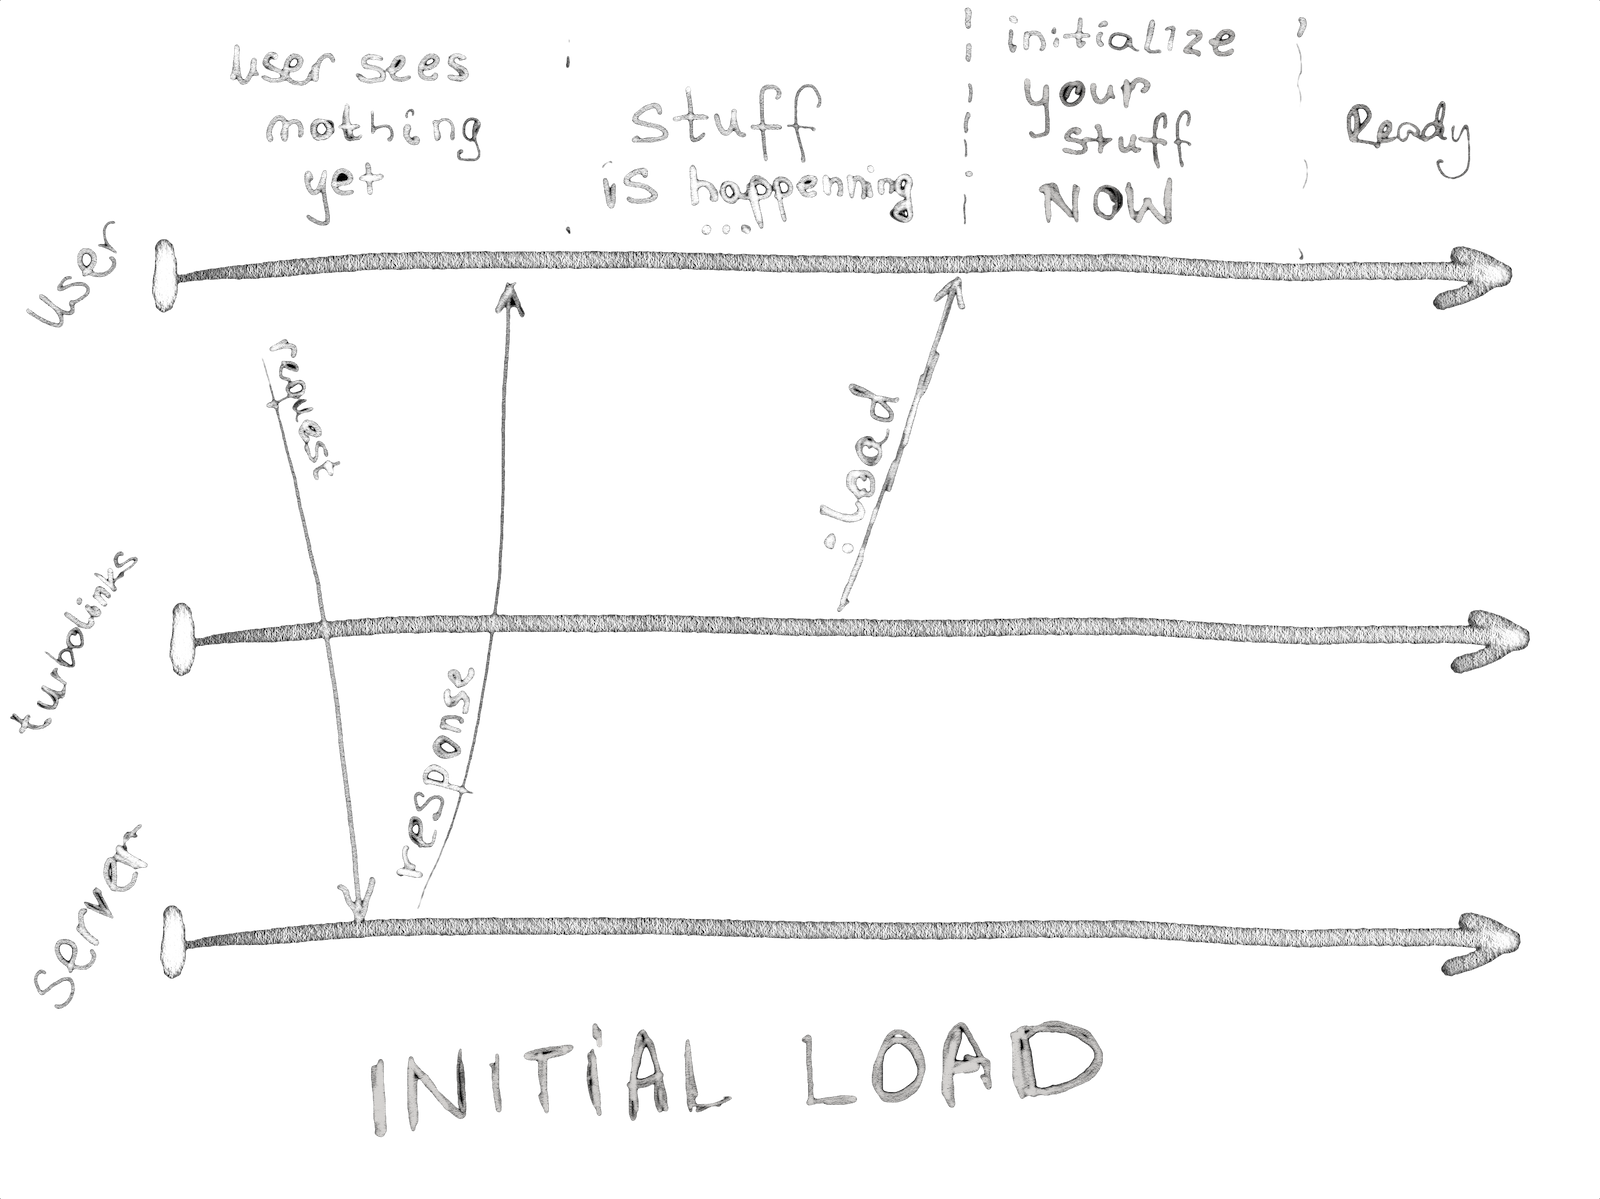 User sees
nothing
yet
stuff
is happenning
...
initialize
your
stuff
NOW
Ready
User
request
:load
turbolinks
response
Server
INITIAL LOAD